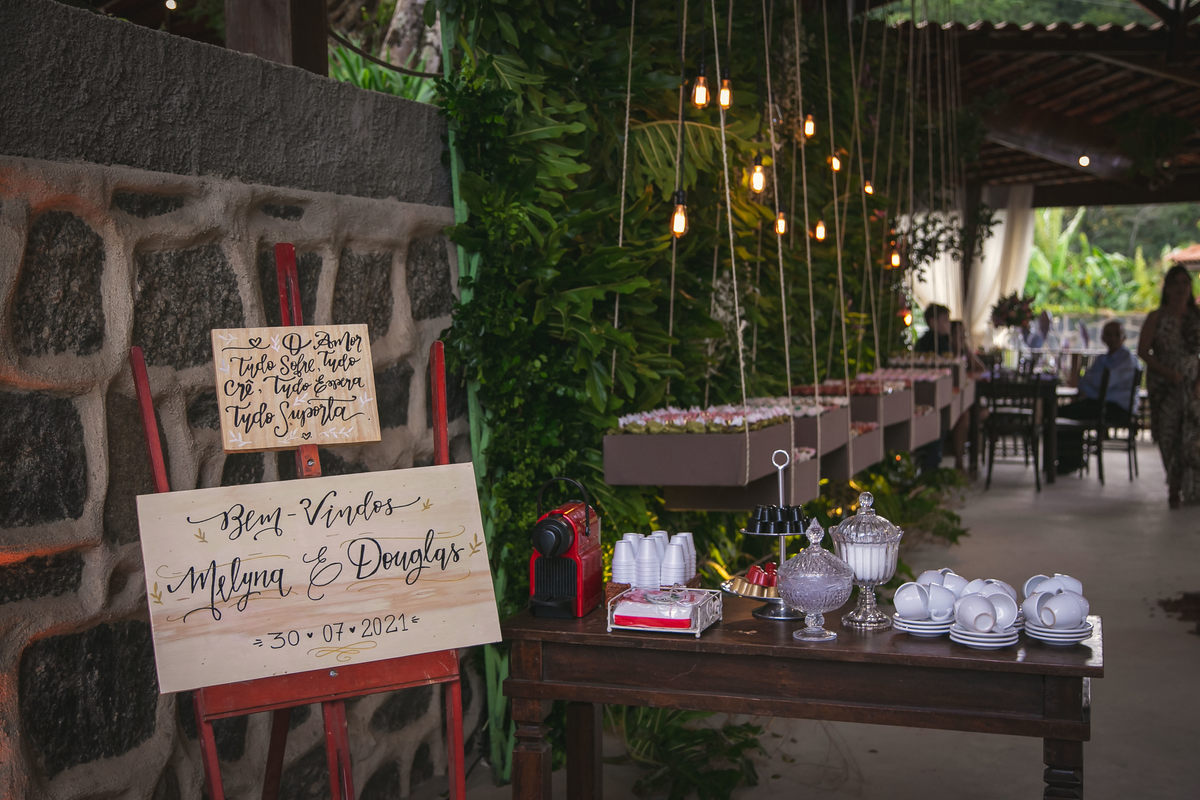 O Amor
Tudo Sofre, Tudo
Crê, Tudo Espera
Tudo Suporta
Bem-Vindos
Melyna & Douglas
30 07 2021